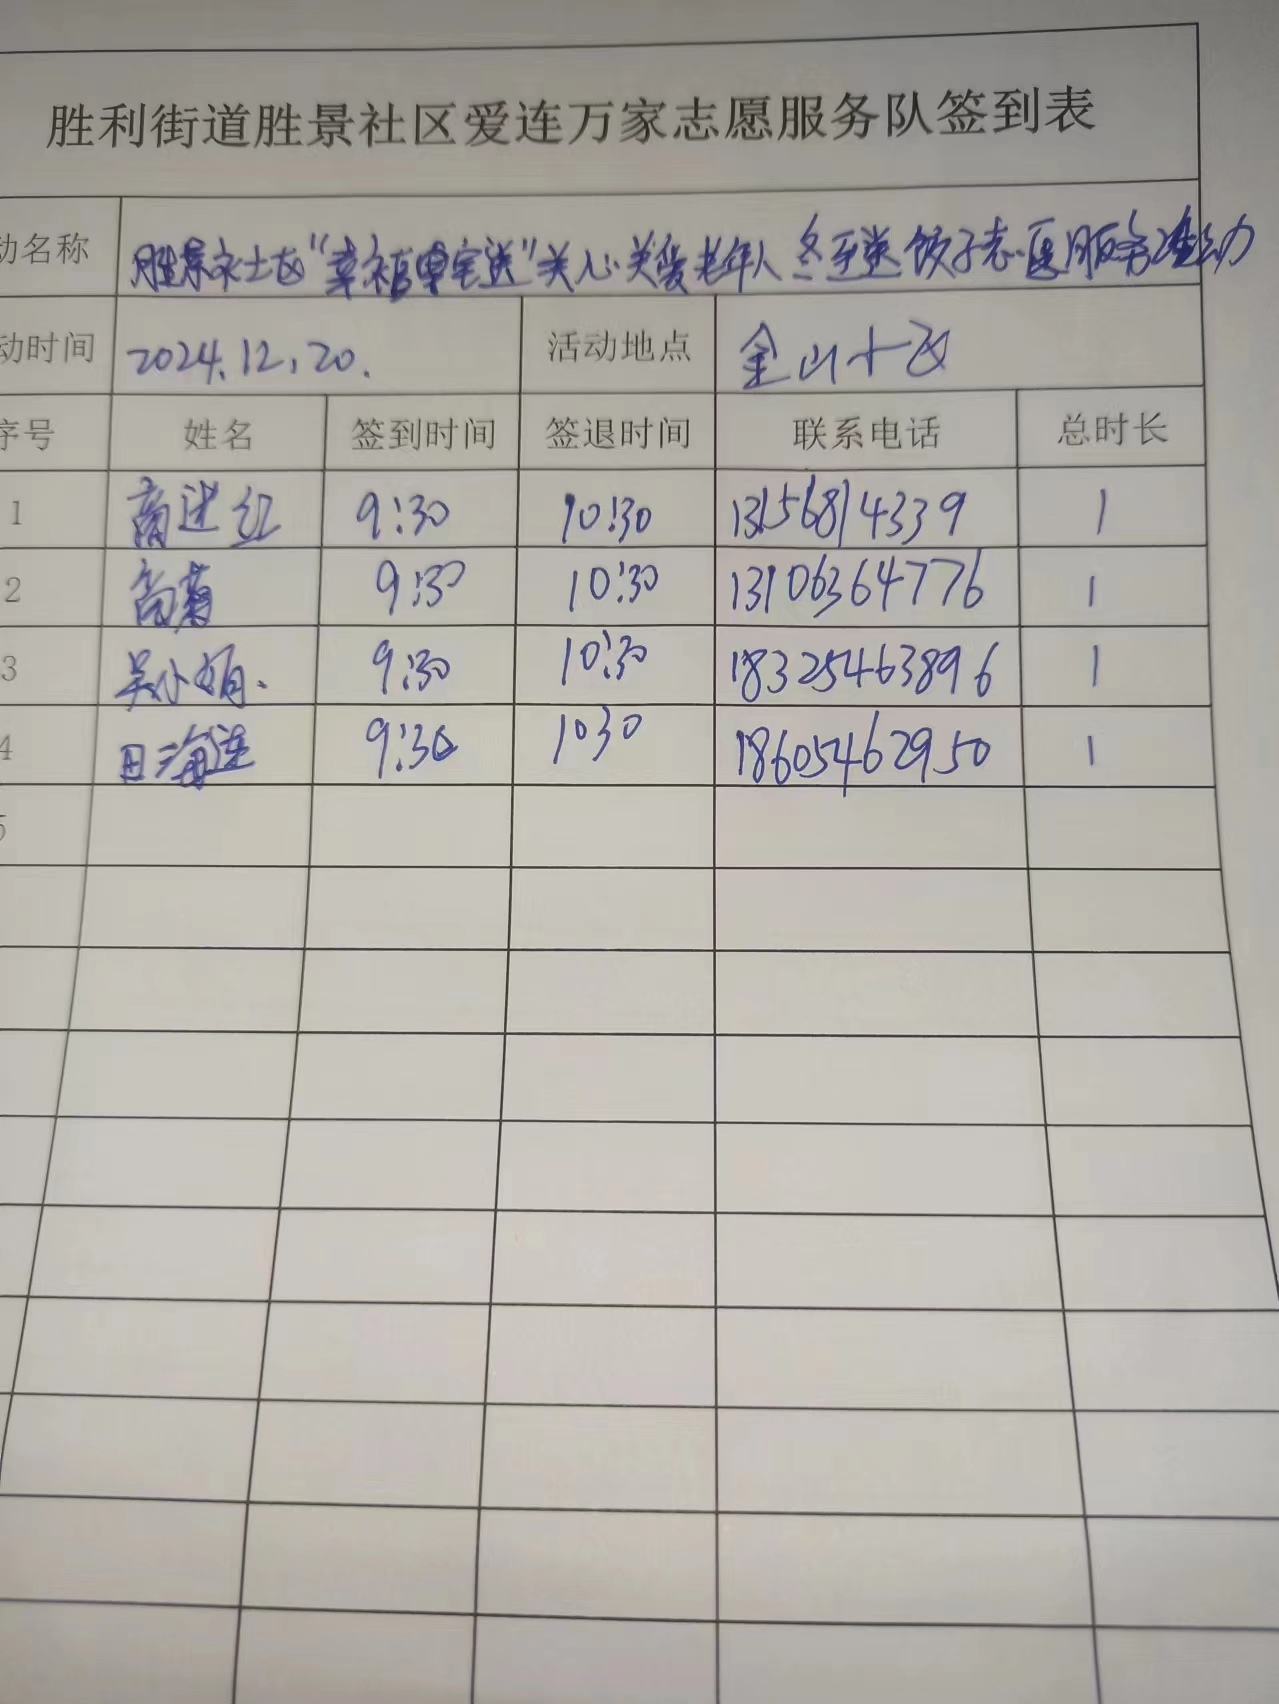 胜利街道胜景社区爱连万家志愿服务队签到表
动名称 胜景社区“幸福单宝送”关心关爱老年人冬至送饺子志愿服务活动
动时间 2024.12.20. 活动地点 金山小区
序号 姓名 签到时间 签退时间 联系电话 总时长
1 红 9:30 10:30 13156814339 1
2 高菊 9:30 10:30 13106364776 1
3 吴小娟. 9:30 10:30 18325463896 1
4 田海莲 9:30 1030 18605462950 1
5